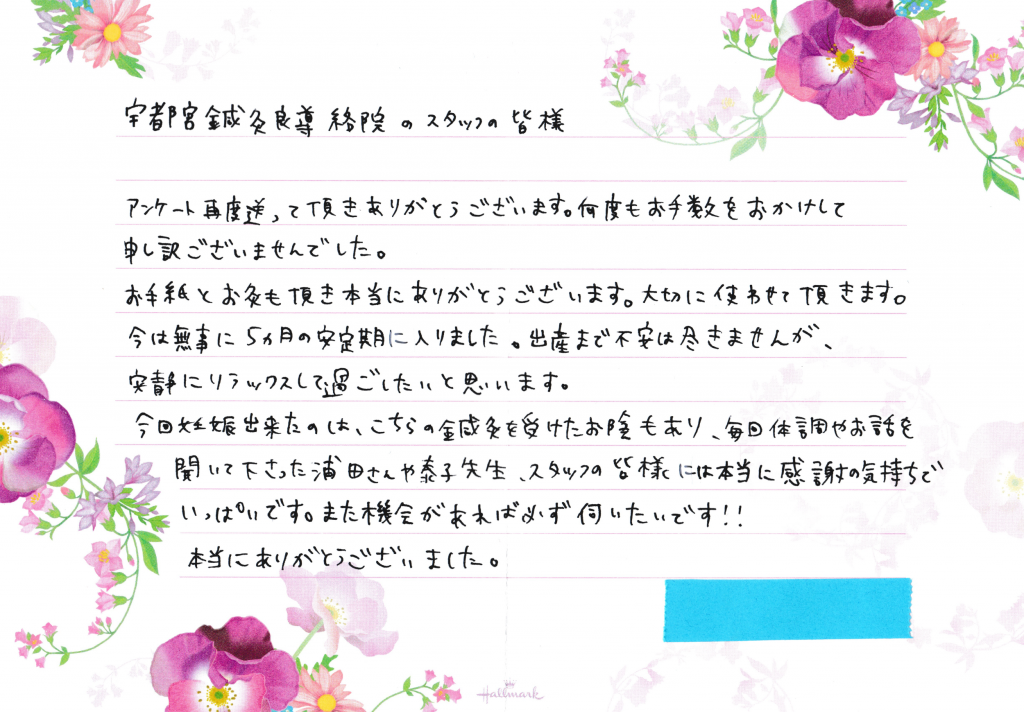 宇都宮鍼灸良導絡院のスタッフの皆様
アンケート再度送って頂きありがとうございます。何度もお手数をおかけして
申し訳ございませんでした。
お手紙とお灸も頂き本当にありがとうございます。大切に使わせて頂きます。
今は無事に5ヵ月の安定期に入りました。出産まで不安は尽きませんが、
安静にリラックスして過ごしたいと思います。
今回妊娠出来たのは、こちらの鍼灸を受けたお陰もあり、毎回体調やお話を
聞いて下さった浦田さんや泰子先生、スタッフの皆様には本当に感謝の気持ちで
いっぱいです。また機会があれば必ず伺いたいです!!
本当にありがとうございました。
Hallmark